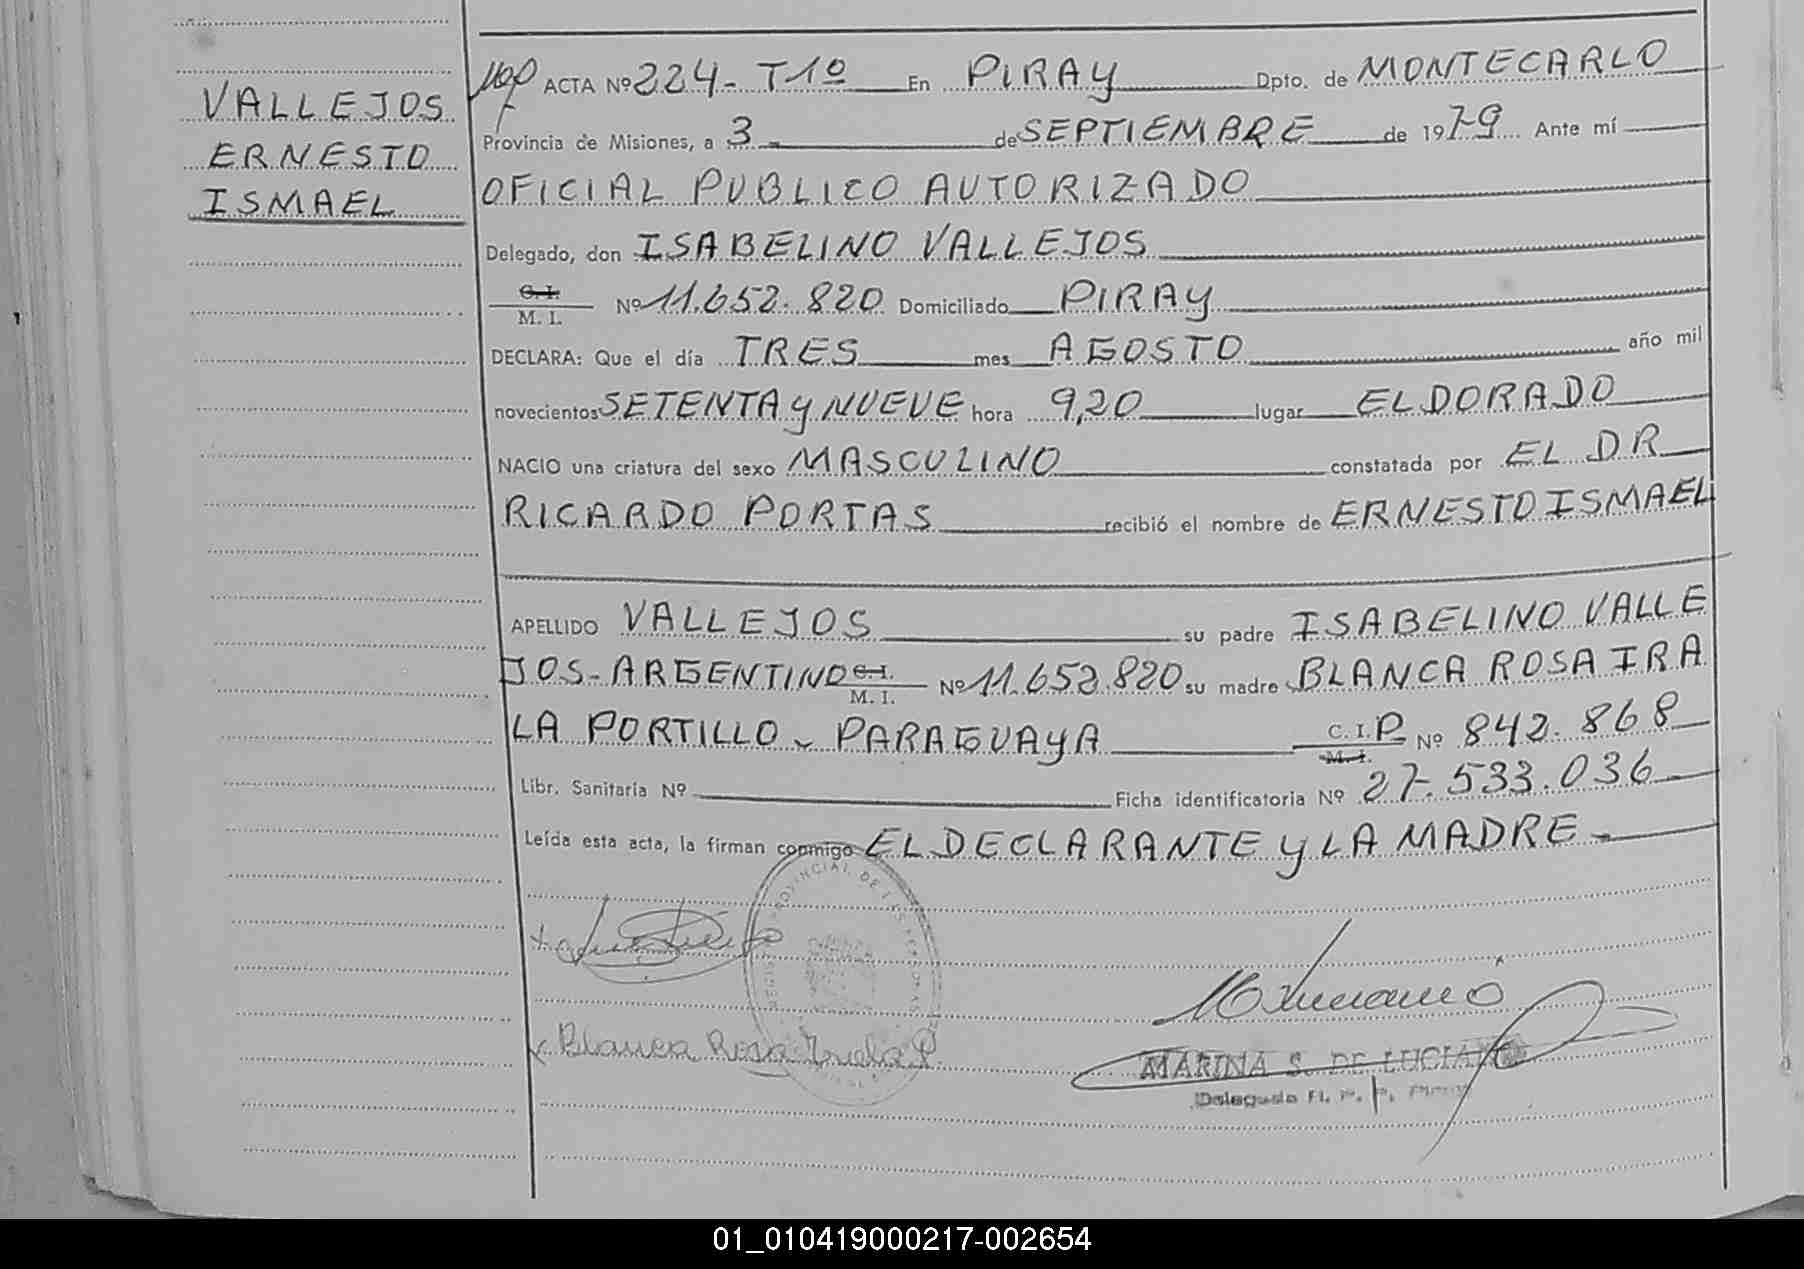 VALLEJOS
ERNESTO
ISMAEL
ACTA Nº 224- T1º En PIRAY Dpto. de MONTECARLO
Provincia de Misiones, a 3 de SEPTIEMBRE de 1979 Ante mí
OFICIAL PUBLICO AUTORIZADO
Delegado, don ISABELINO VALLEJOS
C. I.
M. I. Nº 11.652.820 Domiciliado PIRAY
DECLARA: Que el día TRES mes AGOSTO año mil
novecientos SETENTA y NUEVE hora 9,20 lugar ELDORADO
NACIO una criatura del sexo MASCULINO constatada por EL DR
RICARDO PORTAS recibió el nombre de ERNESTO ISMAEL
APELLIDO VALLEJOS su padre ISABELINO VALLE
JOS- ARGENTINO C. I. M. I. Nº 11.652.820 su madre BLANCA ROSA IRA
LA PORTILLO - PARAGUAYA C. I. P. M. I. Nº 842.868
Libr. Sanitaria Nº Ficha identificatoria Nº 27.533.036
Leída esta acta, la firman conmigo EL DECLARANTE y LA MADRE-
Blanca Rosa Irala P.
MARINA S. DE LUCIANO
Delegada
01_010419000217-002654